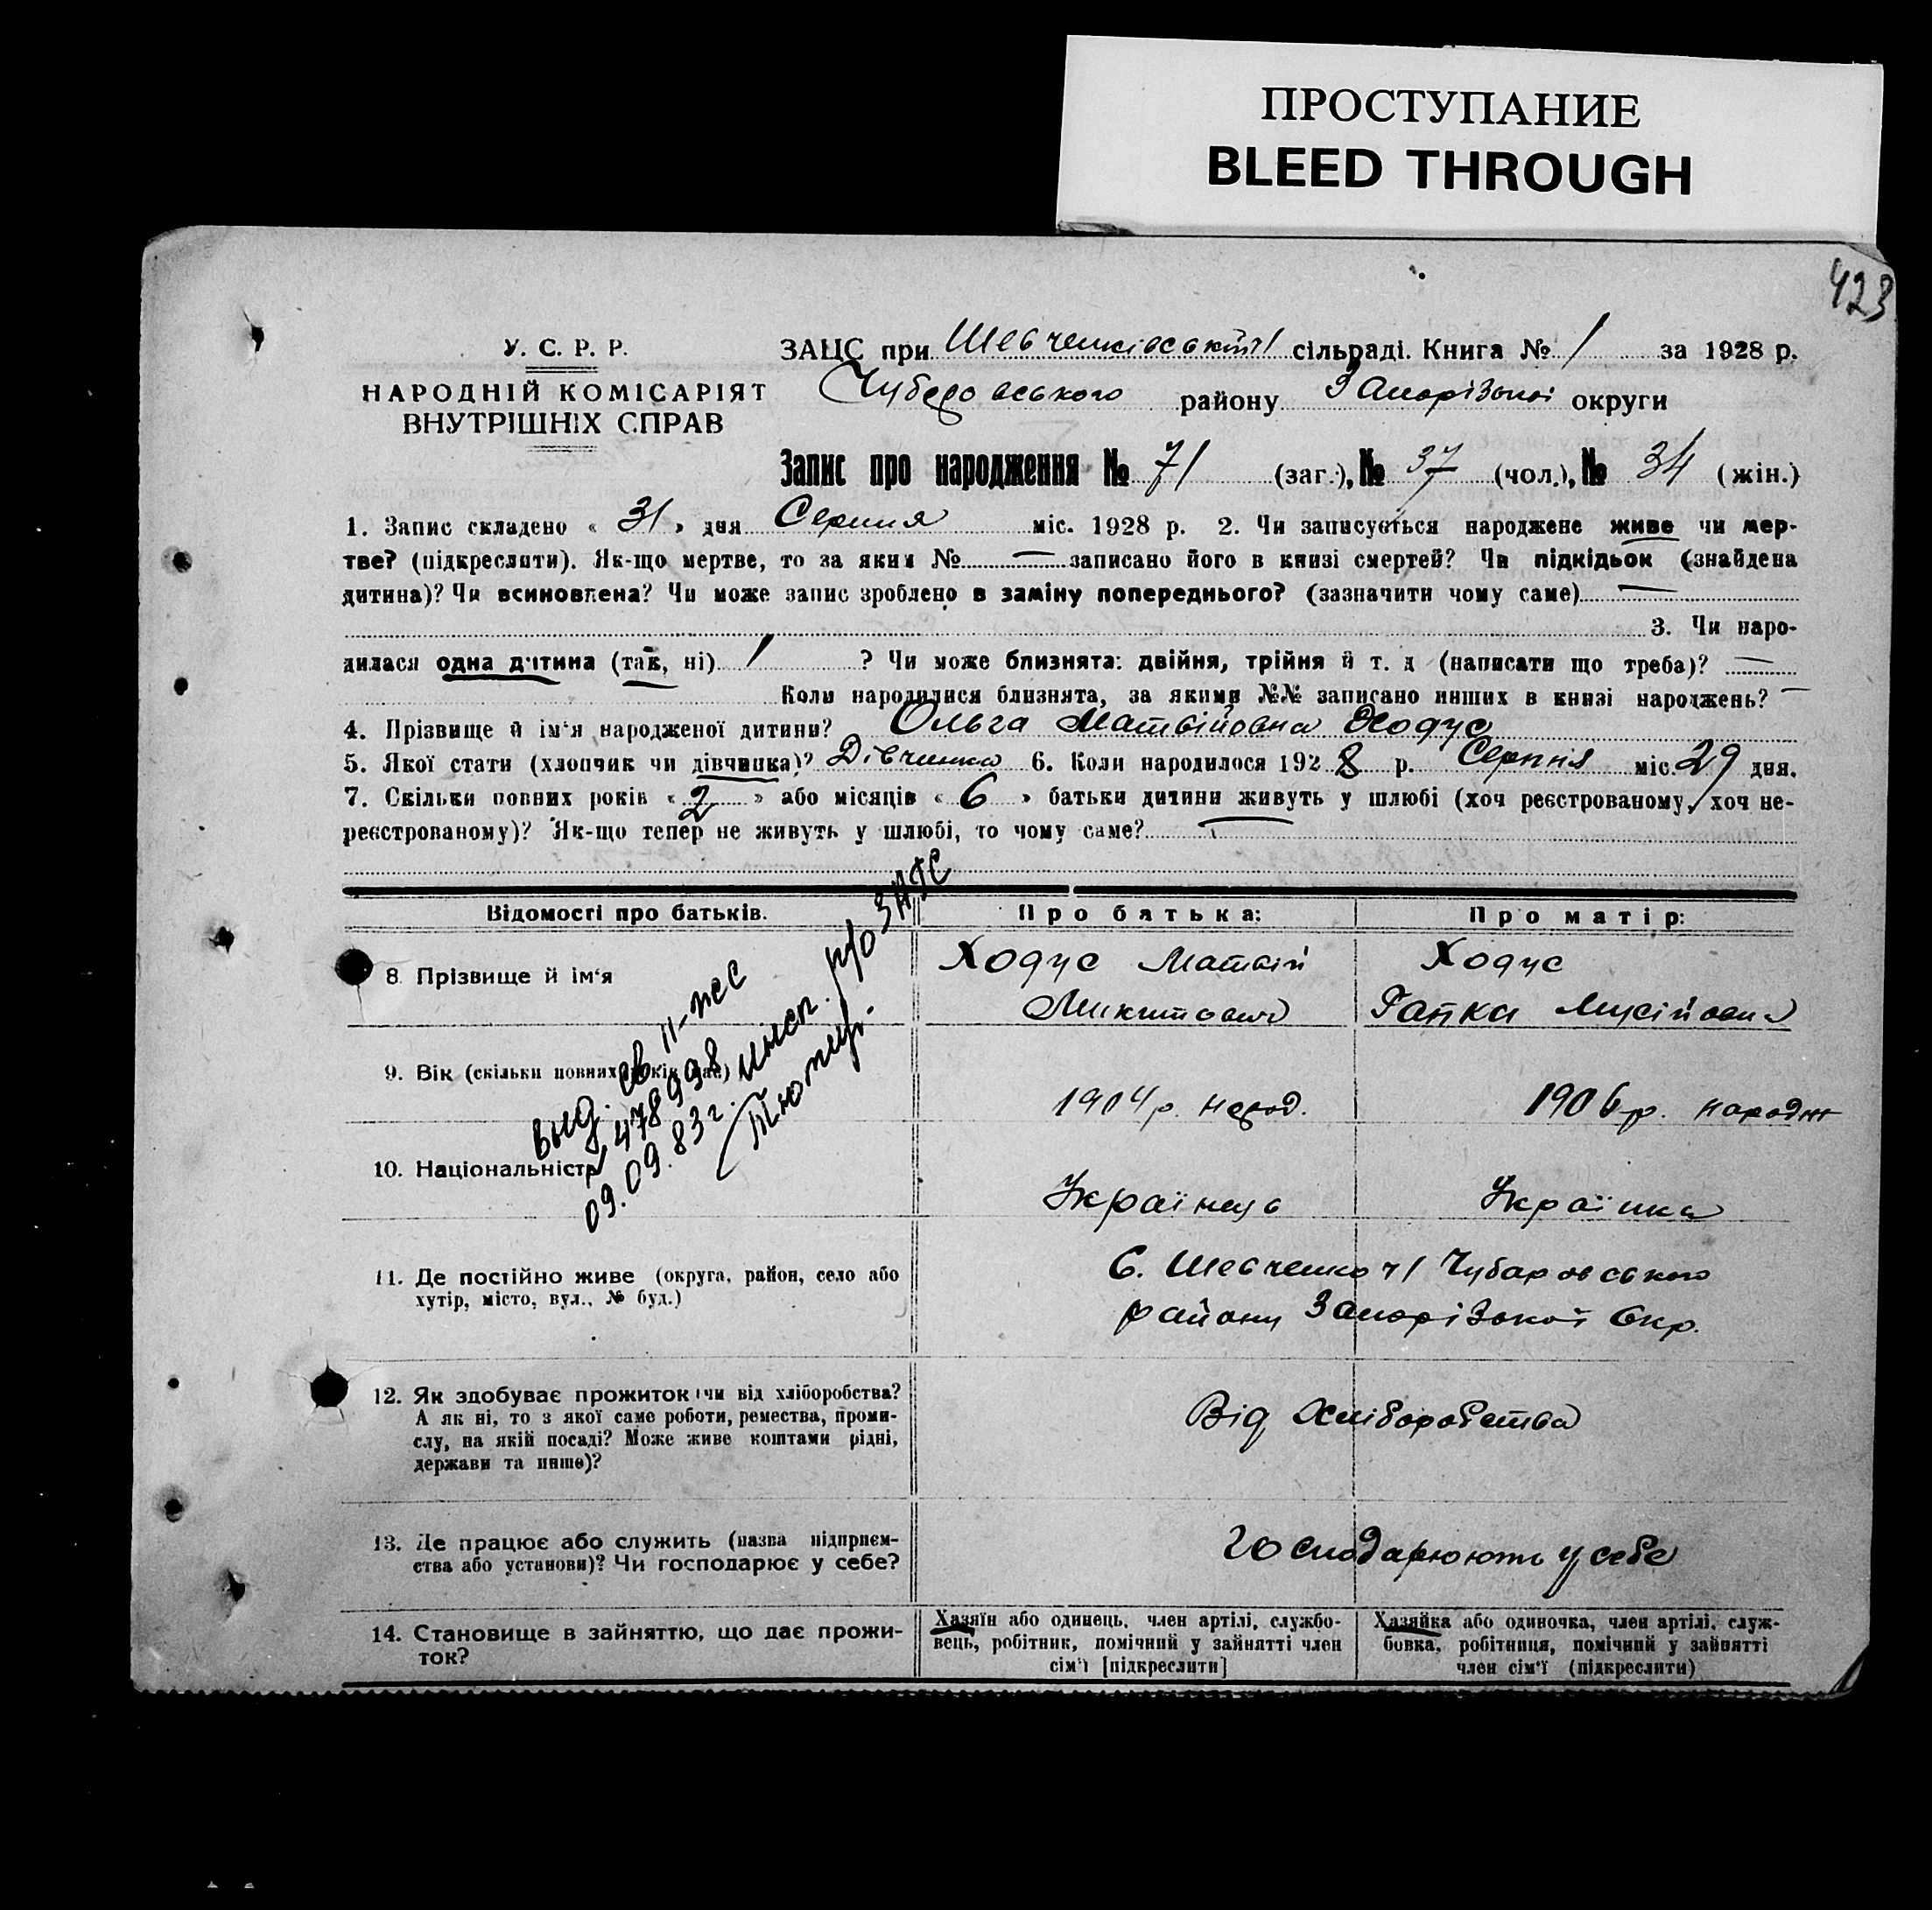 ПРОСТУПАНИЕ
BLEED THROUGH
423
У. С. Р. Р.
НАРОДНІЙ КОМІСАРІЯТ
ВНУТРІШНІХ СПРАВ
ЗАЦС при Шевченківській сільраді. Книга № 1 за 1928 р.
Чубаровського району Запорізької округи
Запис про народження № 71 (заг.), № 37 (чол.), № 34 (жін.)
1. Запис складено « 31 » дня Серпня міс. 1928 р. 2. Чи записується народжене живе чи мер-
тве? (підкреслити). Як-що мертве, то за яким № — записано його в книзі смертей? Чи підкідьок (знайдена
дитина)? Чи всиновлена? Чи може запис зроблено в заміну попереднього? (зазначити чому саме) —
3. Чи наро-
дилася одна дитина (так, ні) 1 ? Чи може близнята: двійня, трійня й т. д (написати що треба)? —
Коли народилися близнята, за якими №№ записано инших в книзі народжень? —
4. Прізвище й ім'я народженої дитини? Ольга Матвійовна Ходус
5. Якої стати (хлопчик чи дівчинка)? Дівчинка 6. Коли народилося 1928 р. Серпня міс. 29 дня.
7. Скільки повних років « 2 » або місяців « 6 » батьки дитини живуть у шлюбі (хоч реєстрованому, хоч не-
реєстрованому)? Як-що тепер не живуть у шлюбі, то чому саме?
Відомості про батьків.
Про батька:
Про матір:
8. Прізвище й ім'я
Ходус Матвій
Микитович
Ходус
Гапка Мусійовна
9. Вік (скільки повних років має)
1904 р. народ.
1906 р. народж
10. Національність
Українець
Українка
выд. св II-жс
№ 478998
09.09.83 г. р/о ЗАГС
11. Де постійно живе (округа, район, село або
хутір, місто, вул., № буд.)
С. Шевченко ч/ Чубаровського
району Запорізької Окр.
12. Як здобуває прожиток (чи від хліборобства?
А як ні, то з якої саме роботи, ремества, проми-
слу, на якій посаді? Може живе коштами рідні,
держави та инше)?
Від Хліборобства
13. Де працює або служить (назва підприєм-
ства або установи)? Чи господарює у себе?
Господарюють у себе
14. Становище в зайняттю, що дає прожи-
ток?
Хазяїн або одинець, член артілі, службо-
вець, робітник, помічний у зайнятті член
сім'ї [підкреслити]
Хазяйка або одиночка, член артілі, служ-
бовка, робітниця, помічний у зайнятті
член сім'ї (підкреслити)